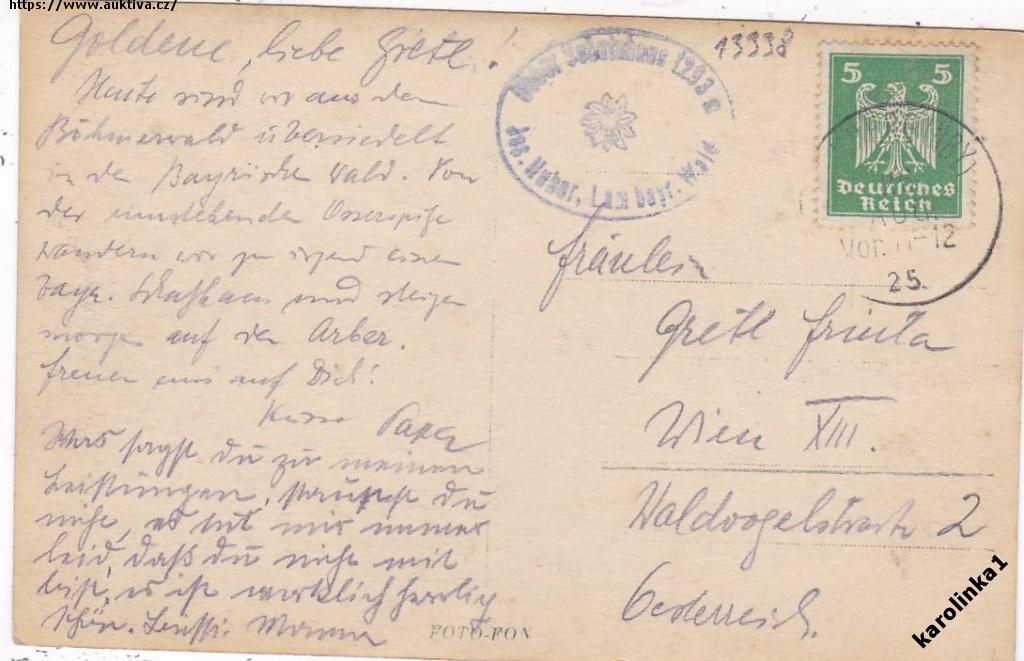 https://www.auktiva.cz/
Goldene, liebe Gretl!
Heute sind wir aus dem
Böhmerwald übersiedelt
in den Bayrischen Wald. Von
der umstehenden Osserspitze
wandern wir zu irgend einem
bayr. Schutzhaus und steigen
morgen auf den Arber.
freuen uns auf Dich!
Papa
Was sagst du zu meinen
Leistungen, staunst du
nicht, es tut mir immer
leid, daß du nicht mit
bist, es ist wirklich herrlich
schön. Bussi. Mama
FOTO-FON
13338
Osser Schutzhaus 1293 m
Jos. Huber, Lam bayr. Wald
5 5
Deutsches
Reich
AUG.
Vor. 11-12
25.
Fräulein
Gretl
Wien XIII.
Waldvogelstraße 2
Oesterreich.
karolinka1